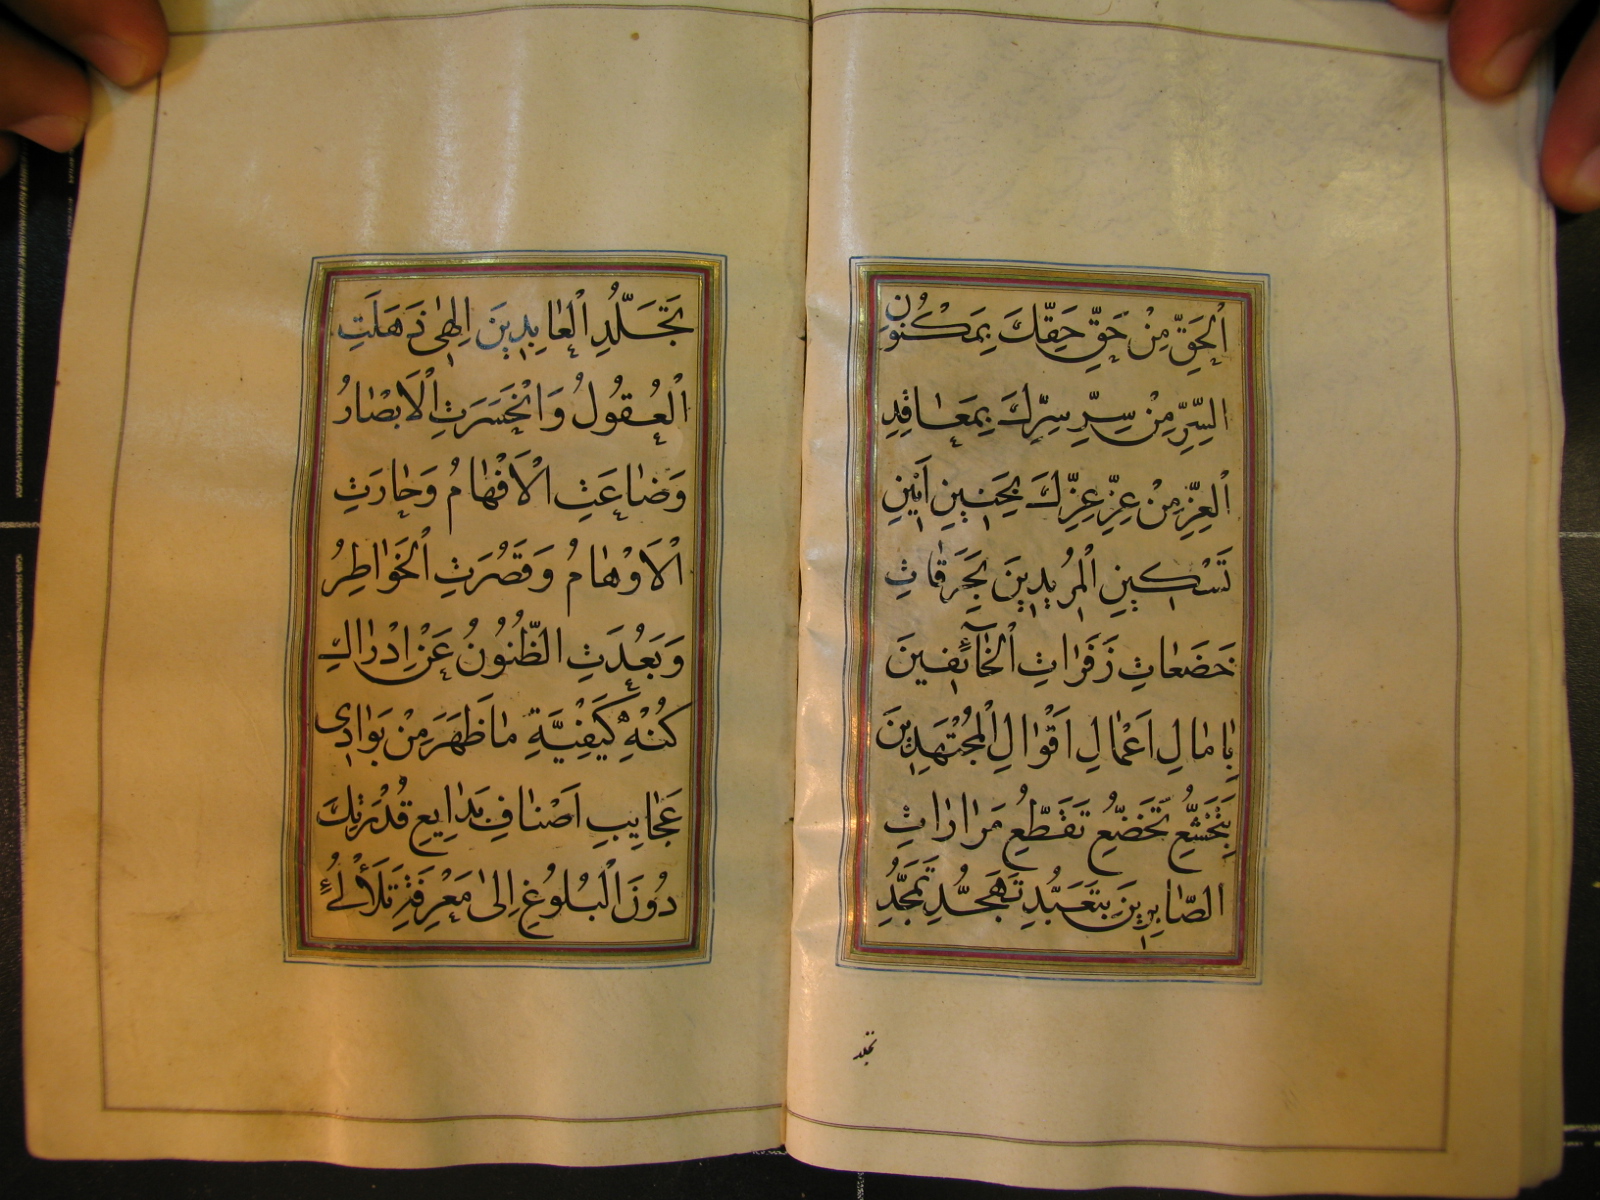 اْلحَقِّ مِنْ حَقِّ حَقِّكَ بِمَكْنُونِ
السِّرِّ مِنْ سِرِّ سِرِّكَ بِمَعٰاقِدِ
اْلعِزِّ مِنْ عِزِّ عِزِّكَ بِحَنِينِ اَنِينِ
تَسْكِينِ اْلمُرِيدِينَ بِحَرَقٰاتِ
خَضَعٰاتِ زَفَرٰاتِ اْلخٰآئِفِينَ
بِاٰمٰالِ اَعْمٰالِ اَقْوٰالِ اْلمُجْتَهِدِينَ
بِتَخَشُّعِ تَخَضُّعِ تَقَطُّعِ مَرٰارٰاتِ
الصّٰابِرِينَ بِتَعَبُّدِ تَهَجُّدِ تَمَجُّدِ
تجلد
تَجَلُّدِ اْلعٰابِدِينَ اِلٰهِى ذَهَلَتِ
اْلعُقُولُ وَانْحَسَرَتِ اْلاَبْصٰارُ
وَضٰاعَتِ اْلاَفْهٰامُ وَحٰارَتِ
اْلاَوْهٰامُ وَقَصُرَتِ اْلخَوٰاطِرُ
وَبَعُدَتِ الظُّنُونُ عَنْ اِدْرٰاكِ
كُنْهِ كَيْفِيَّةِ مٰاظَهَرَ مِنْ بَوٰادِى
عَجٰايِبِ اَصْنٰافِ بَدٰايِعِ قُدْرَتِكَ
دُونَ اْلبُلُوغِ اِلىٰ مَعْرِفَةِ تَلَأْلُءِ